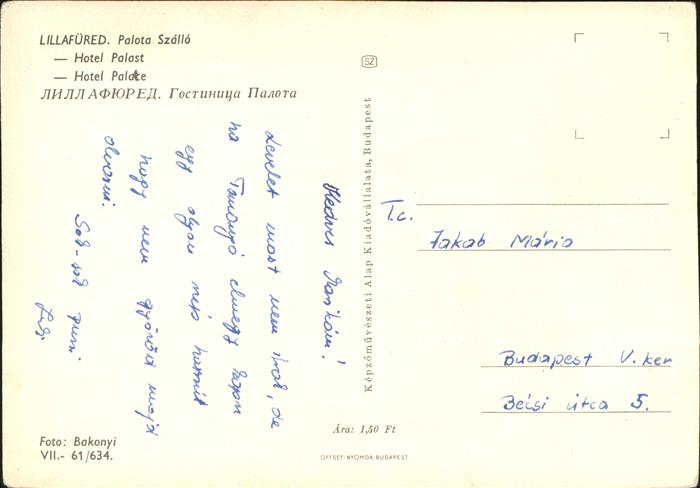 LILLAFÜRED. Palota Szálló
— Hotel Palast
— Hotel Palace
ЛИЛЛАФЮРЕД. Гостиница Палота
Kedves Marikám!
Levelet most nem írok, de
ha Tamásnyó elmegy kapsz
egy olyan nép hosszút
hogy nem győzöd majd
olvasni.
Sok-sok puszi
SZ
Képzőművészeti Alap Kiadóvállalata, Budapest
T.c.
Jakab Mária
Budapest V. ker
Bécsi útca 5.
Foto: Bakonyi
VII.- 61/634.
Ára: 1,50 Ft
OFFSET-NYOMDA BUDAPEST